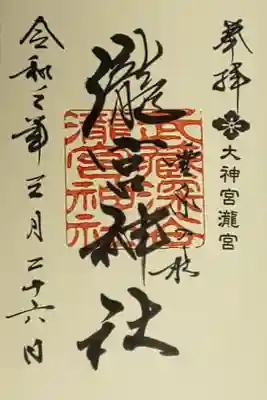 奉拝
大神宮瀧宮
武蔵深谷
瀧宮神社
瀧宮神社
令和 年 月二十六日